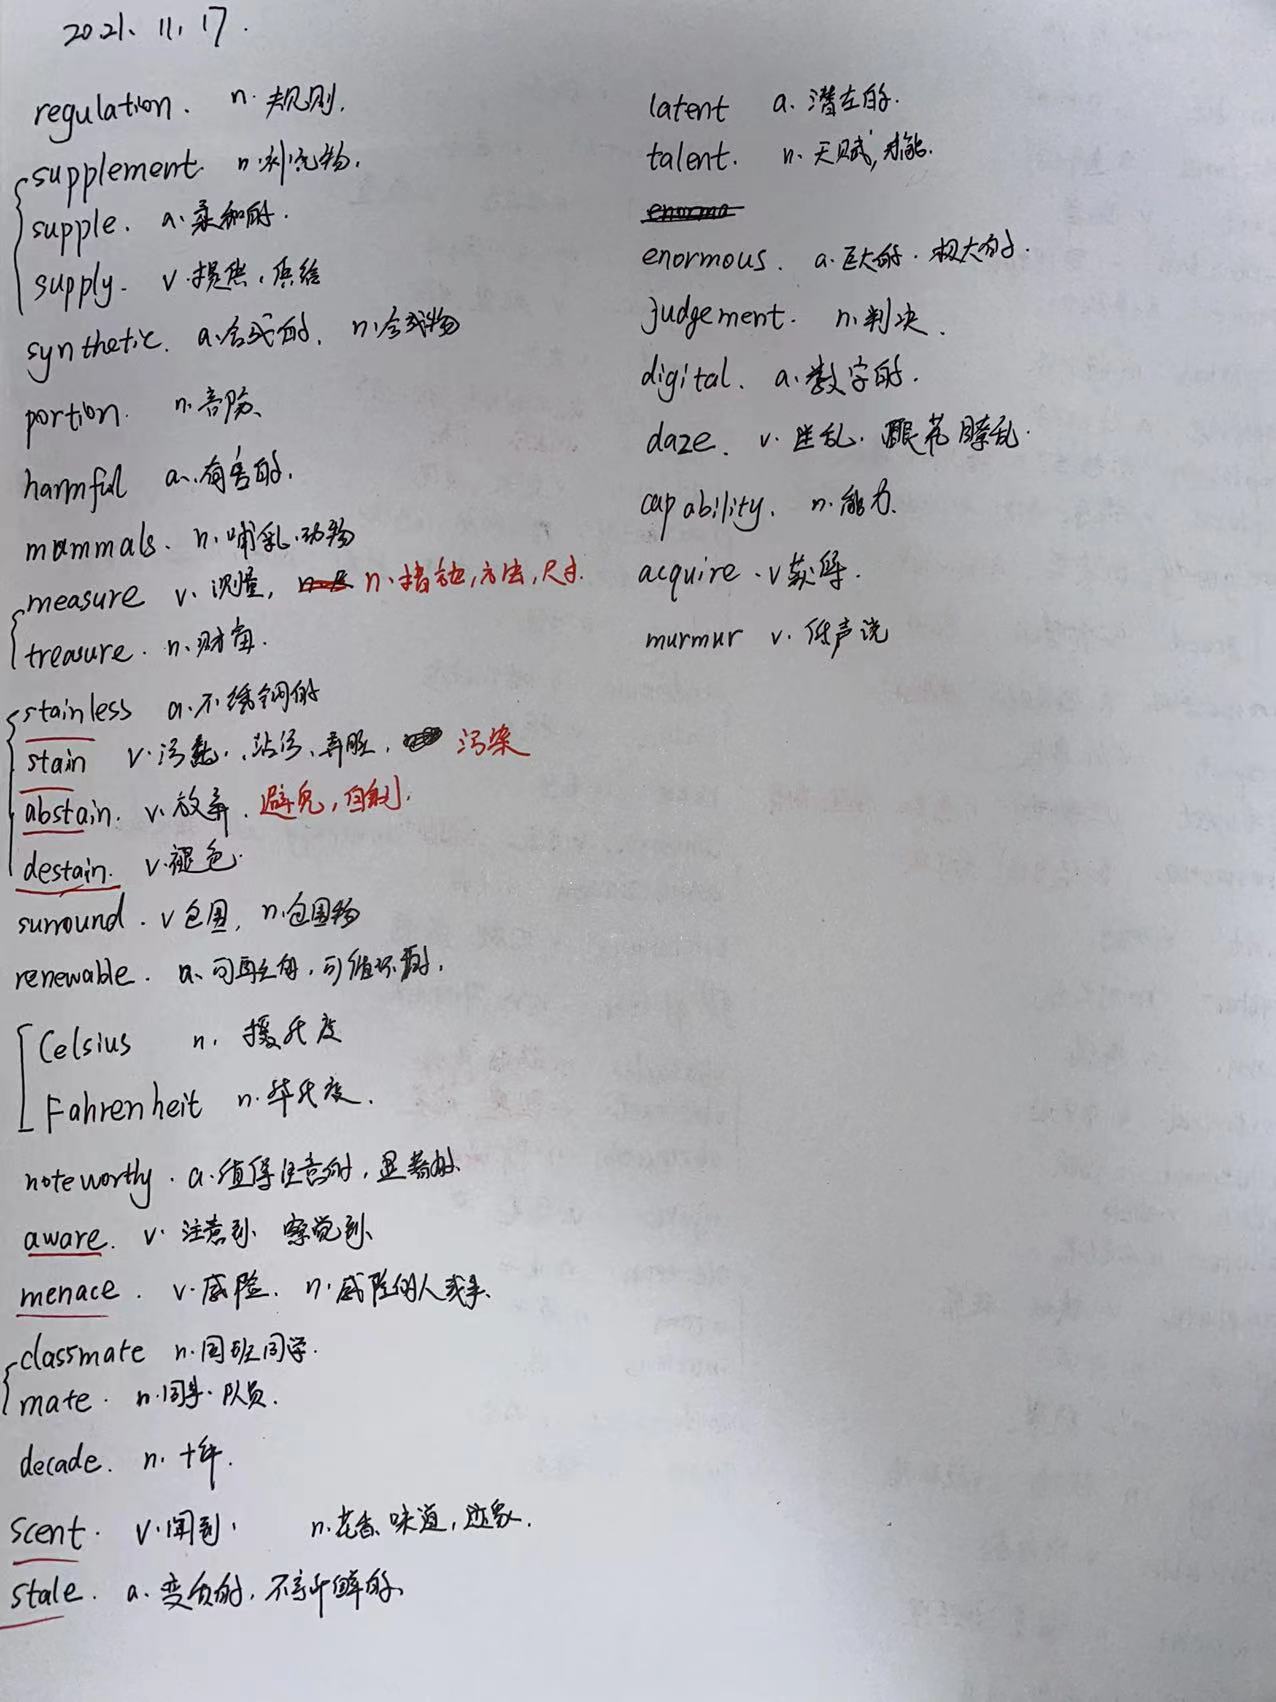 2021.11.17.
regulation. n.规则.
supplement. n.补充物.
supple. a.柔和的.
supply. v.提供,供给
synthetic. a.合成的. n.合成物
portion. n.部分、
harmful a.有害的.
mammals. n.哺乳动物
measure v.测量, n.措施,方法,尺寸.
treasure. n.财富.
stainless a.不锈钢的
stain v.污点,沾污、弄脏, 污染
abstain. v.放弃. 避免,自制.
destain. v.褪色.
surround. v包围, n.包围物
renewable. a.可再生的,可循环的.
Celsius n. 摄氏度
Fahrenheit n.华氏度.
noteworthy. a.值得注意的,显著的.
aware. v.注意到、察觉到、
menace. v.威险. n.威险的人或事、
classmate n.同班同学.
mate. n.同事.队员.
decade. n.十年.
scent. v.闻到, n.花香、味道,迹象.
stale. a.变质的,不新鲜的、
latent a.潜在的.
talent. n.天赋,才能.
enormous. a.巨大的.极大的.
judgement. n.判决.
digital. a.数字的.
daze. v.迷乱.眼花瞭乱.
capability. n.能力.
acquire. v获得.
murmur v.低声说